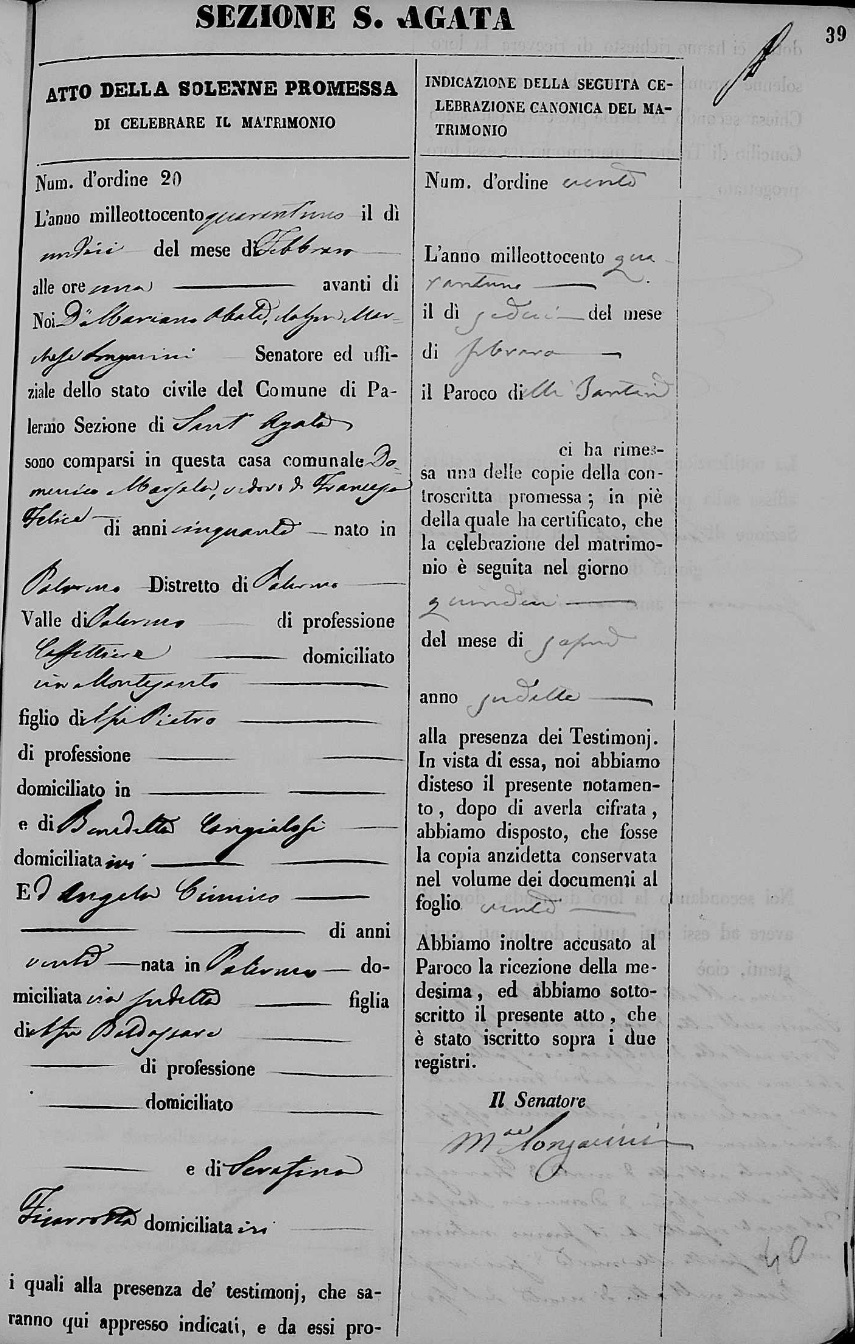 SEZIONE S. AGATA
39
ATTO DELLA SOLENNE PROMESSA
DI CELEBRARE IL MATRIMONIO
Num. d'ordine 20
L'anno millottocento quarantuno il dì
undici del mese di Febbraro
alle ore una avanti di
Noi Dn Mariano Abate, Mar-
chese Longarini Senatore ed uffi-
ziale dello stato civile del Comune di Pa-
lermo Sezione di Sant' Agata
sono comparsi in questa casa comunale Do-
menico Marsala, vedovo di Francesca
Felice di anni cinquanta nato in
Palermo Distretto di Palermo
Valle di Palermo di professione
Caffettiere domiciliato
via Montesanto
figlio di Pietro
di professione
domiciliato in
e di Benedetta Cangialosi
domiciliata ivi
E d Angela Cimino
di anni
venti nata in Palermo do-
miciliata via sudetta figlia
di Baldassare
di professione
domiciliato
e di Serafina
Ficarrotta domiciliata ivi
i quali alla presenza de' testimonj, che sa-
ranno qui appresso indicati, e da essi pro-
INDICAZIONE DELLA SEGUITA CE-
LEBRAZIONE CANONICA DEL MA-
TRIMONIO
Num. d'ordine venti
L'anno milleottocento qua
rantuno
il dì sedici del mese
di febraro
il Paroco di
ci ha rimes-
sa una delle copie della con-
troscritta promessa ; in piè
della quale ha certificato, che
la celebrazione del matrimo-
nio è seguita nel giorno
quindici
del mese di
anno sudetto
alla presenza dei Testimonj.
In vista di essa, noi abbiamo
disteso il presente notamen-
to , dopo di averla cifrata ,
abbiamo disposto, che fosse
la copia anzidetta conservata
nel volume dei documenti al
foglio venti
Abbiamo inoltre accusato al
Paroco la ricezione della me-
desima , ed abbiamo sotto-
scritto il presente atto , che
è stato iscritto sopra i due
registri.
Il Senatore
Mse Longarini
40